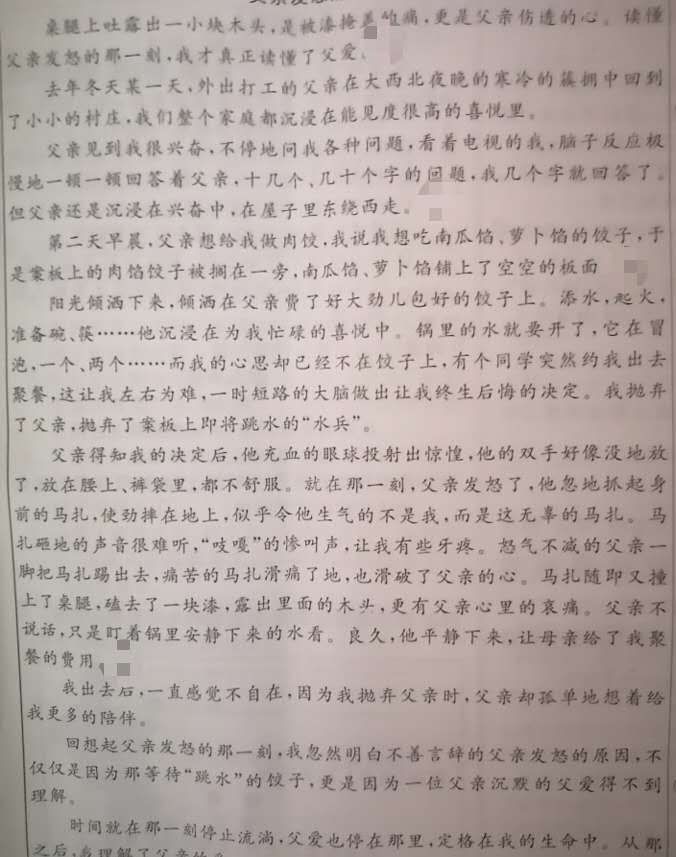 桌腿上吐露出一小块木头,是被漆掩盖的痛,更是父亲伤透的心。读懂
父亲发怒的那一刻,我才真正读懂了父爱。
去年冬天某一天,外出打工的父亲在大西北夜晚的寒冷的簇拥中回到
了小小的村庄,我们整个家庭都沉浸在能见度很高的喜悦里。
父亲见到我很兴奋,不停地问我各种问题,看着电视的我,脑子反应极
慢地一顿一顿回答着父亲,十几个、几十个字的问题,我几个字就回答了。
但父亲还是沉浸在兴奋中,在屋子里东绕西走。
第二天早晨,父亲想给我做肉饺,我说我想吃南瓜馅、萝卜馅的饺子,于
是案板上的肉馅饺子被搁在一旁,南瓜馅、萝卜馅铺上了空空的板面
阳光倾洒下来,倾洒在父亲费了好大劲儿包好的饺子上。添水,起火,
准备碗、筷……他沉浸在为我忙碌的喜悦中。锅里的水就要开了,它在冒
泡,一个、两个……而我的心思却已经不在饺子上,有个同学突然约我出去
聚餐,这让我左右为难,一时短路的大脑做出让我终生后悔的决定。我抛弃
了父亲,抛弃了案板上即将跳水的“水兵”。
父亲得知我的决定后,他充血的眼球投射出惊惶,他的双手好像没地放
了,放在腰上、裤袋里,都不舒服。就在那一刻,父亲发怒了,他忽地抓起身
前的马扎,使劲摔在地上,似乎令他生气的不是我,而是这无辜的马扎。马
扎砸地的声音很难听,“吱嘎”的惨叫声,让我有些牙疼。怒气不减的父亲一
脚把马扎踢出去,痛苦的马扎滑痛了地,也滑破了父亲的心。马扎随即又撞
上了桌腿,磕去了一块漆,露出里面的木头,更有父亲心里的哀痛。父亲不
说话,只是盯着锅里安静下来的水看。良久,他平静下来,让母亲给了我聚
餐的费用
我出去后,一直感觉不自在,因为我抛弃父亲时,父亲却孤单地想着给
我更多的陪伴。
回想起父亲发怒的那一刻,我忽然明白不善言辞的父亲发怒的原因,不
仅仅是因为那等待“跳水”的饺子,更是因为一位父亲沉默的父爱得不到
理解。
时间就在那一刻停止流淌,父爱也停在那里,定格在我的生命中。从那
之后,我理解了父亲的